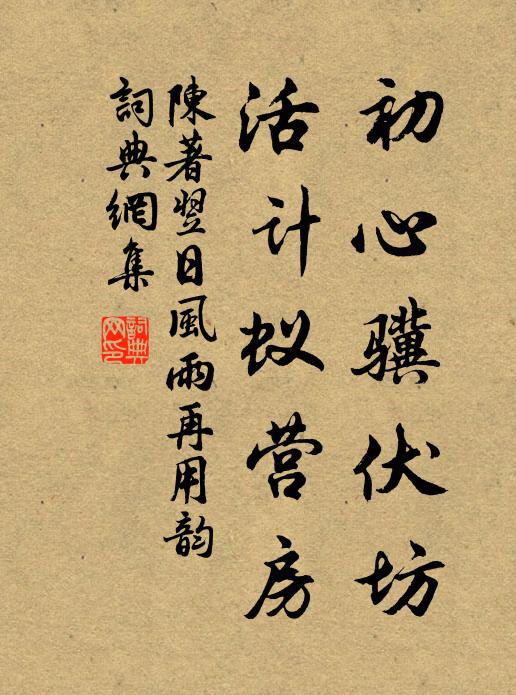 初心骥伏坊
活计蚁营房
陳著翌日風雨再用韵
詞典網集
詞典网印